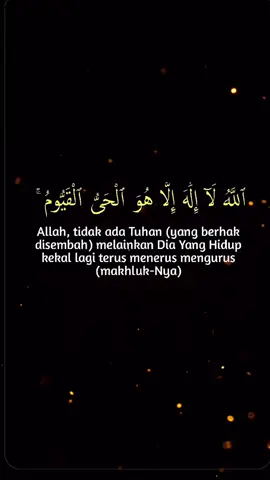 ٱللَّهُ لَآ إِلَٰهَ إِلَّا هُوَ ٱلْحَىُّ ٱلْقَيُّومُ ۚ
Allah, tidak ada Tuhan (yang berhak
disembah) melainkan Dia Yang Hidup
kekal lagi terus menerus mengurus
(makhluk-Nya)